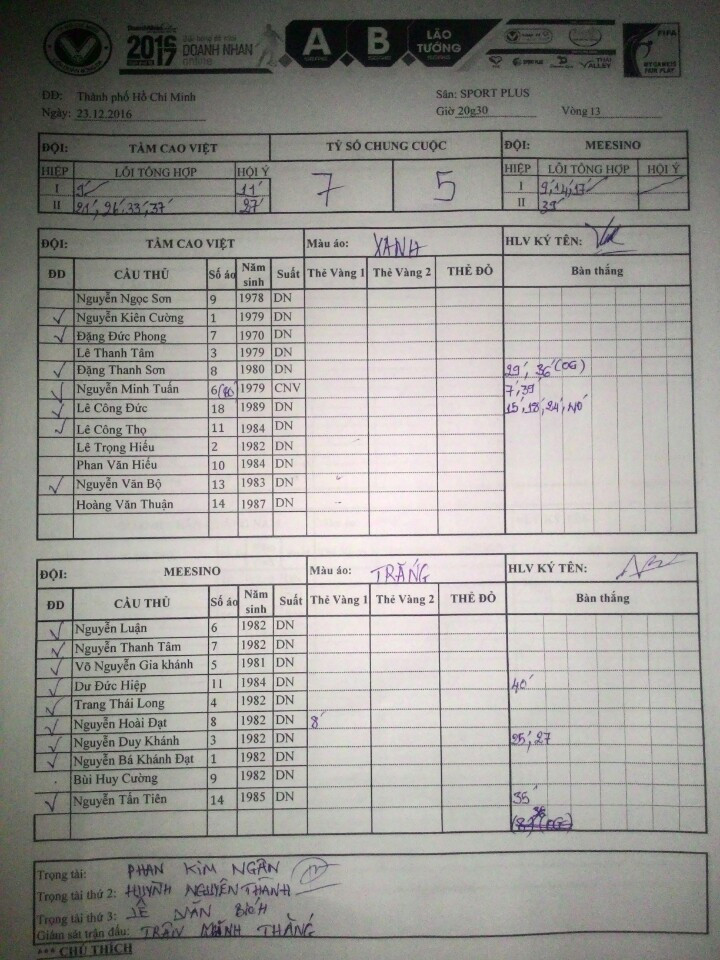 2016 2017 DOANH NHÂN online A B LÃO TƯỚNG THÁI VALLEY FIFA MY GAME IS FAIR PLAY
ĐĐ: Thành phố Hồ Chí Minh Sân: SPORT PLUS
Ngày: 23.12.2016 Giờ 20g30 Vòng 13
ĐỘI: TÂM CAO VIỆT TỶ SỐ CHUNG CUỘC ĐỘI: MEESINO
HIỆP LỖI TỔNG HỢP HỘI Ý 7 5 HIỆP LỖI TỔNG HỢP HỘI Ý
I 9' 11' I 9', 14', 17'
II 21', 26', 33', 37' 27' II 39'
ĐỘI: TÂM CAO VIỆT Màu áo: XANH HLV KÝ TÊN:
ĐD CẦU THỦ Số áo Năm sinh Suất Thẻ Vàng 1 Thẻ Vàng 2 THẺ ĐỎ Bàn thắng
Nguyễn Ngọc Sơn 9 1978 DN
✓ Nguyễn Kiên Cường 1 1979 DN
✓ Đặng Đức Phong 7 1970 DN
Lê Thanh Tâm 3 1979 DN
✓ Đặng Thanh Sơn 8 1980 DN 29', 36' (OG)
✓ Nguyễn Minh Tuấn 6 1979 CNV 7', 39'
✓ Lê Công Đức 18 1989 DN 15', 18', 24', 40'
✓ Lê Công Thọ 11 1984 DN
Lê Trọng Hiếu 2 1982 DN
Phan Văn Hiếu 10 1984 DN
✓ Nguyễn Văn Bộ 13 1983 DN
Hoàng Văn Thuận 14 1987 DN
ĐỘI: MEESINO Màu áo: TRẮNG HLV KÝ TÊN:
ĐD CẦU THỦ Số áo Năm sinh Suất Thẻ Vàng 1 Thẻ Vàng 2 THẺ ĐỎ Bàn thắng
✓ Nguyễn Luận 6 1982 DN
✓ Nguyễn Thanh Tâm 7 1982 DN
✓ Võ Nguyễn Gia khánh 5 1981 DN
✓ Dư Đức Hiệp 11 1984 DN 40'
✓ Trang Thái Long 4 1982 DN
✓ Nguyễn Hoài Đạt 8 1982 DN 8'
✓ Nguyễn Duy Khánh 3 1982 DN 25', 27
✓ Nguyễn Bá Khánh Đạt 1 1982 DN
Bùi Huy Cường 9 1982 DN
✓ Nguyễn Tấn Tiên 14 1985 DN 35'
Trọng tài: PHAN KIM NGÂN
Trọng tài thứ 2: HUỲNH NGUYÊN THÀNH
Trọng tài thứ 3: LÊ VĂN
Giám sát trận đấu: TRẦN MẠNH THẮNG
*** CHÚ THÍCH